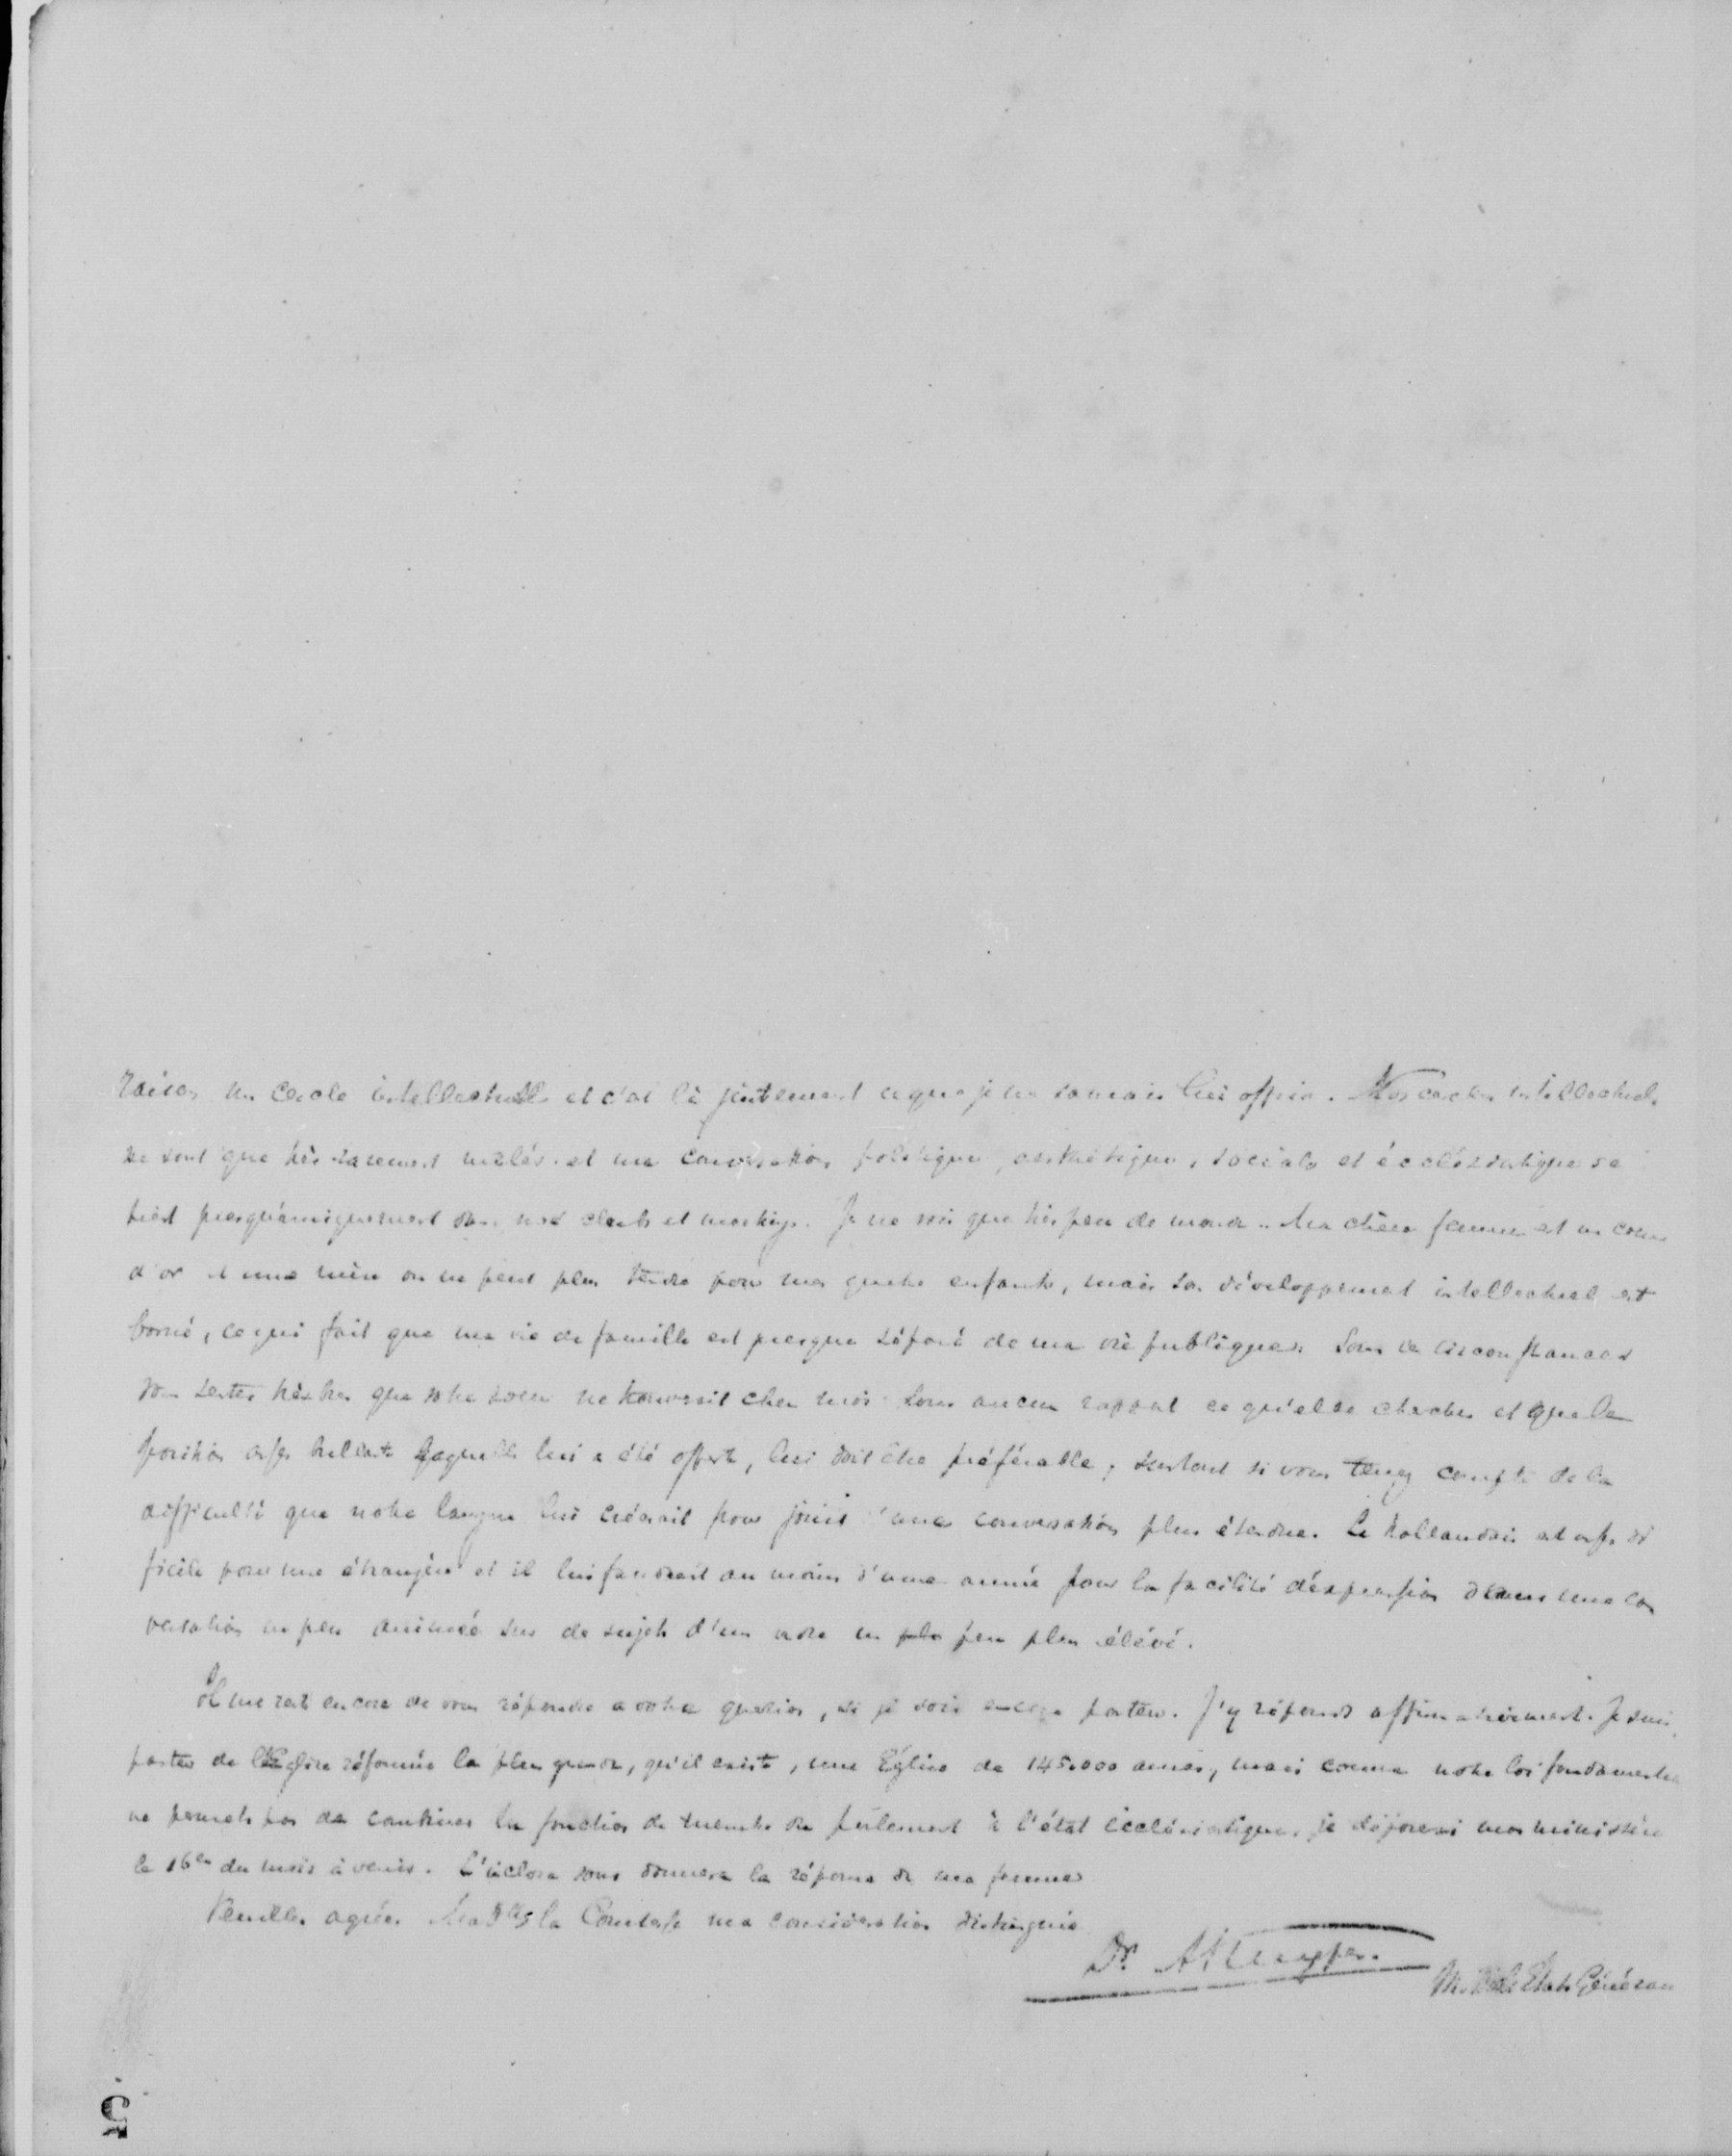 raison un cercle intellectuelle et c'est là justement ce que je ne saurais lui offrir. Nos cercles intellectuels
ne sont que très rarement mêlés et une conversation politique, aesthétique, sociale et écclésiastique se
tient presqu'uniquement dans nos clubs et meetings. Je ne vois que très peu de monde. Ma chère femme est un coeur
d'or et une mère on ne peut plus tendre pour mes quatre enfants, mais son développement intellectuel est
borné, ce qui fait que ma vie de famille est presque séparé de ma vie publique. Sous ces circonstances
vous sentez très bien que votre soeur ne trouverait chez moi sous aucun rapport ce qu'elle cherche et que la
position assez brillante laquelle lui a été offerte, lui doit être préférable, surtout si vous tenez compte de la
difficulté que notre langue lui créerait pour jouir d'une conversation plus étendue. Le hollandais est assez dif
ficile pour une étrangère et il lui faudrait au moins d'une année pour la facilité d'expression dans une con
versation un peu animée sur de sujets d'un ordre un peu plus élévé.
Il me reste encore de vous répondre a votre question, si je sois encore pasteur. J'y réponds affirmativement. Je suis
pasteur de l'Eglise réformée la plus grande, qu'il existe, une Eglise de 145.000 ames, mais comme notre loi fondamentale
ne permets pas de continuer la fonction de membre du parlement à l'état écclésiastique, je déposerai mon ministère
le 16en du mois à venir. L'inclose vous donnera la réponse de ma femme
Veuillez agréer la Comtesse ma consideration distinguée
Dr. A Kuyper.
M. des Etats Généraux
5